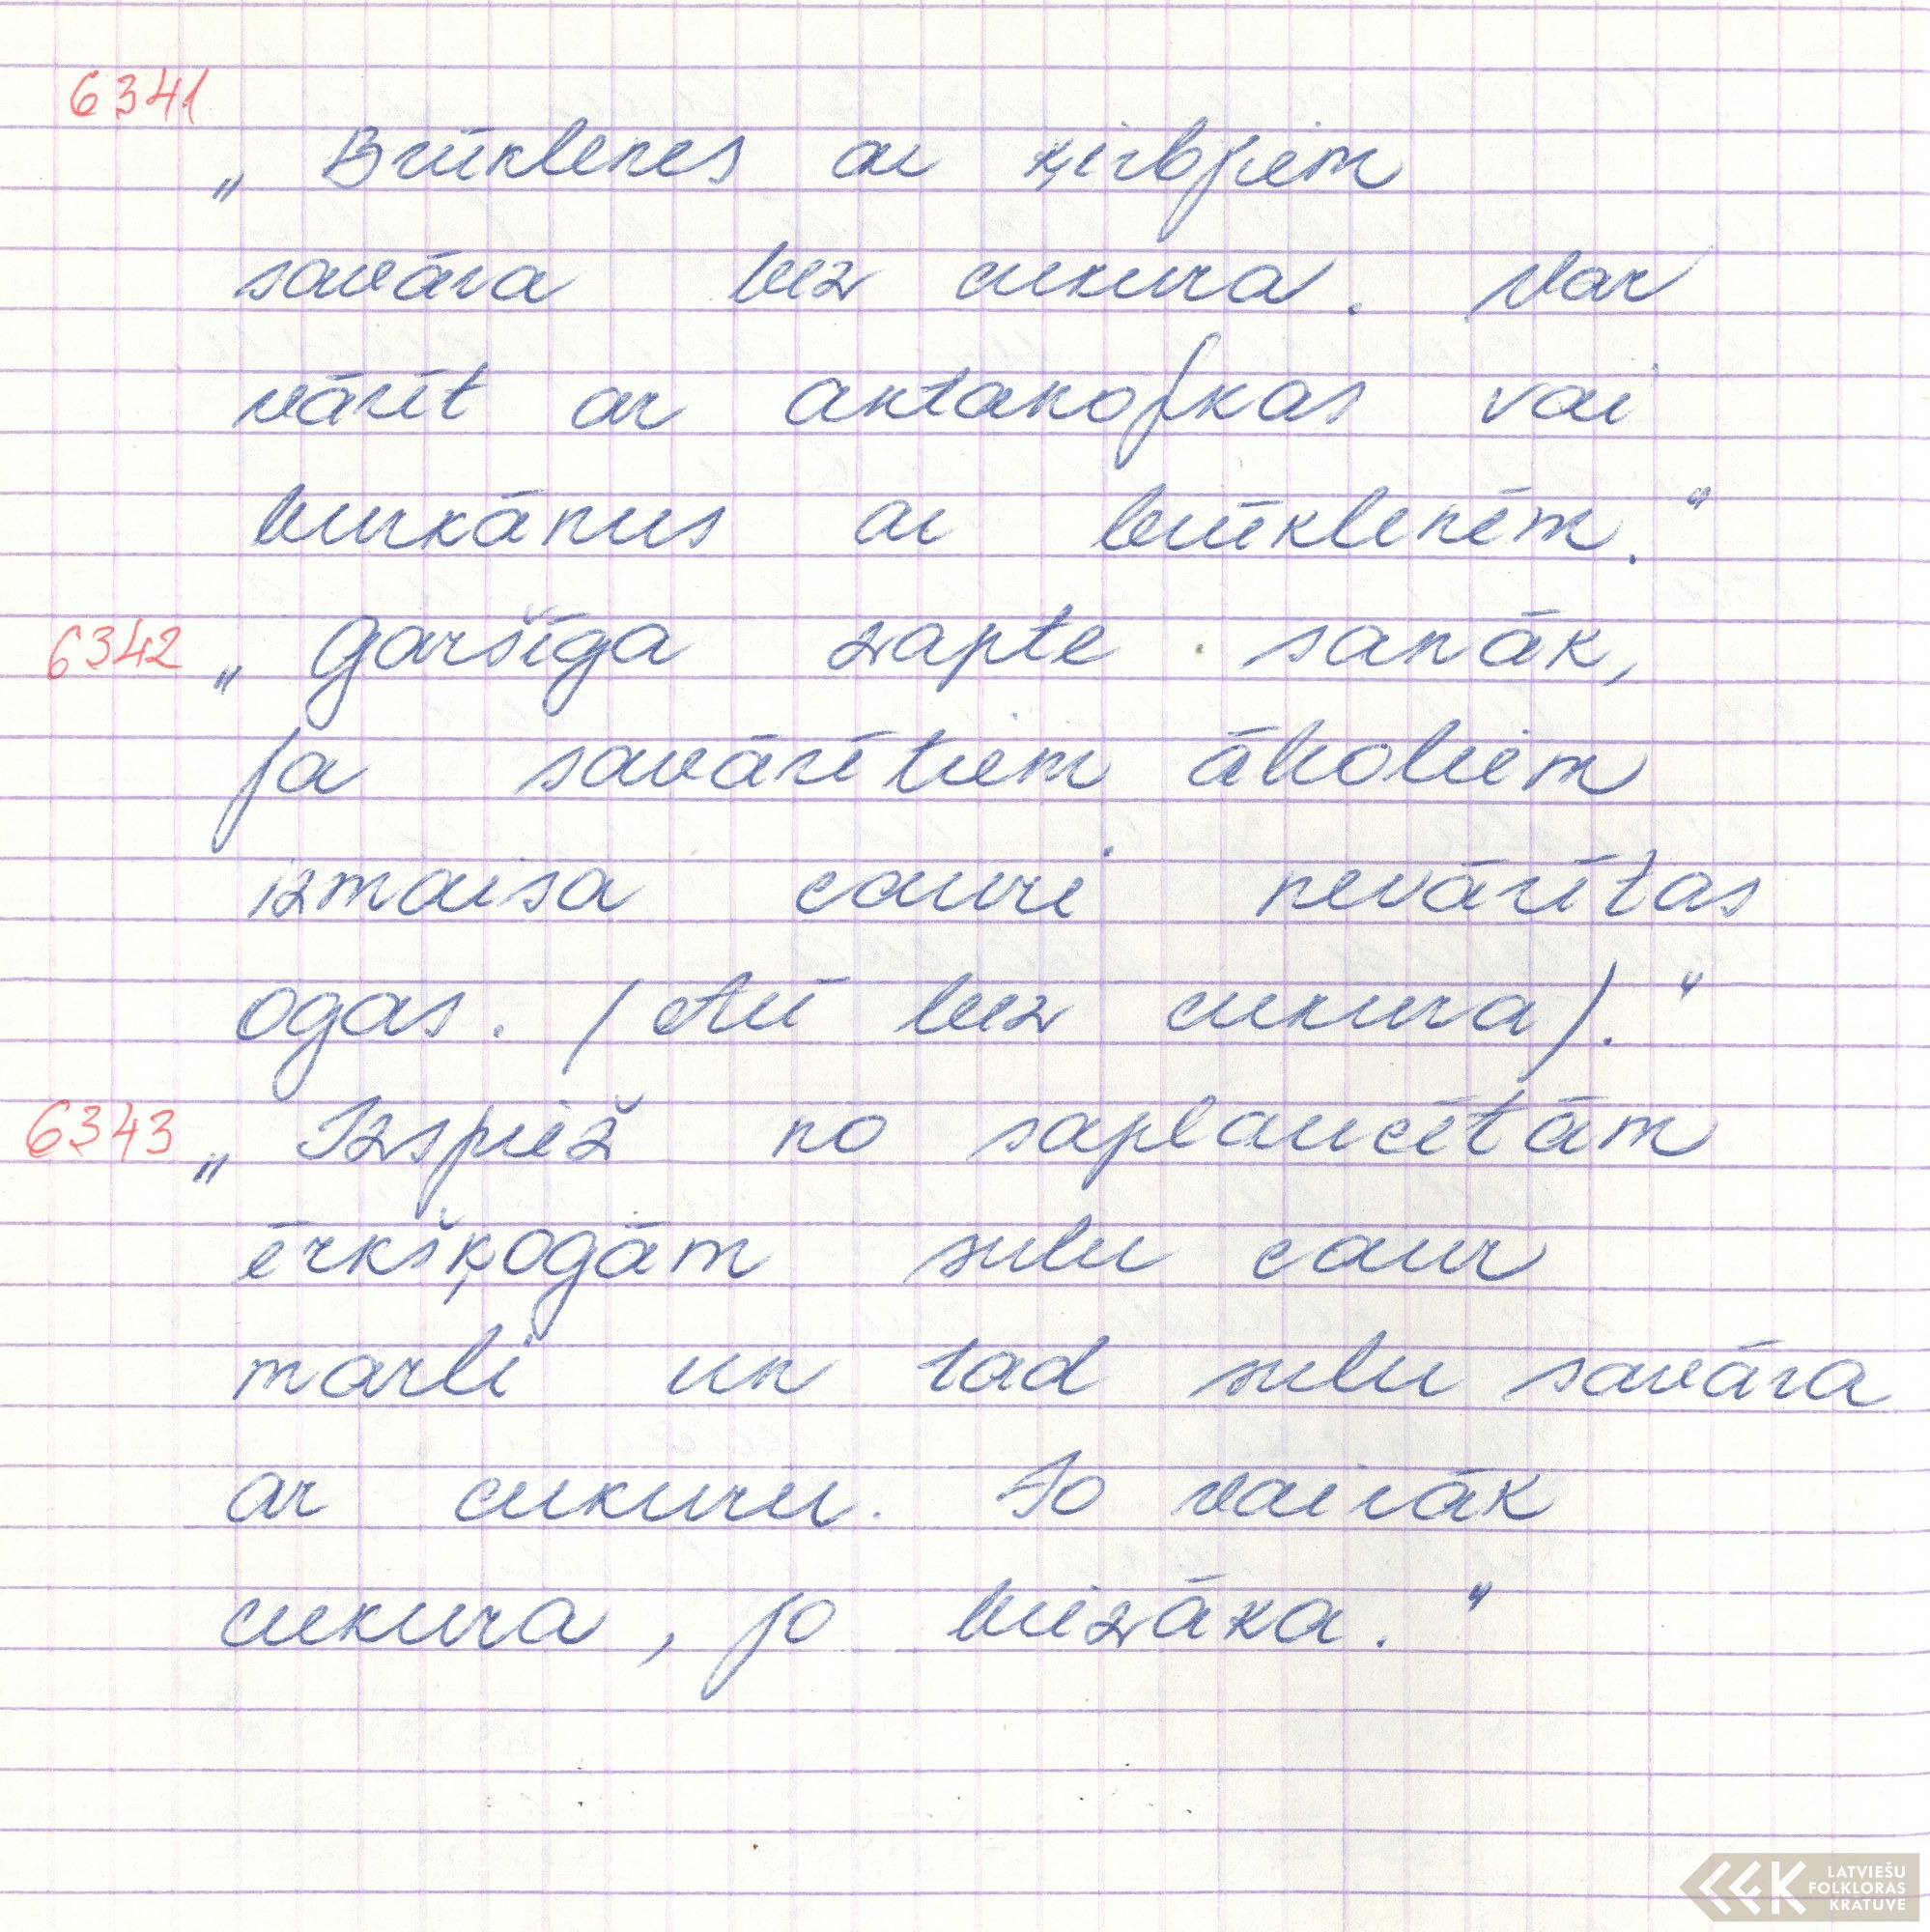 6341
„ Brūklenes ar ķirbjiem
savāra bez cukura. Var
vārīt ar antanofkas vai
burkānus ar brūklenēm.“
6342 „ Garšīga zapte sanāk,
ja savārītiem āboliem
izmaisa cauri nevārītas
ogas. (Arī bez cukura).“
6343 „ Izspiež no saplaucētām
ērkšķogām sulu caur
marli un tad sulu savāra
ar cukuru. Jo vairāk
cukura, jo biezāka.“
LATVIEŠU
FOLKLORAS
KRĀTUVE